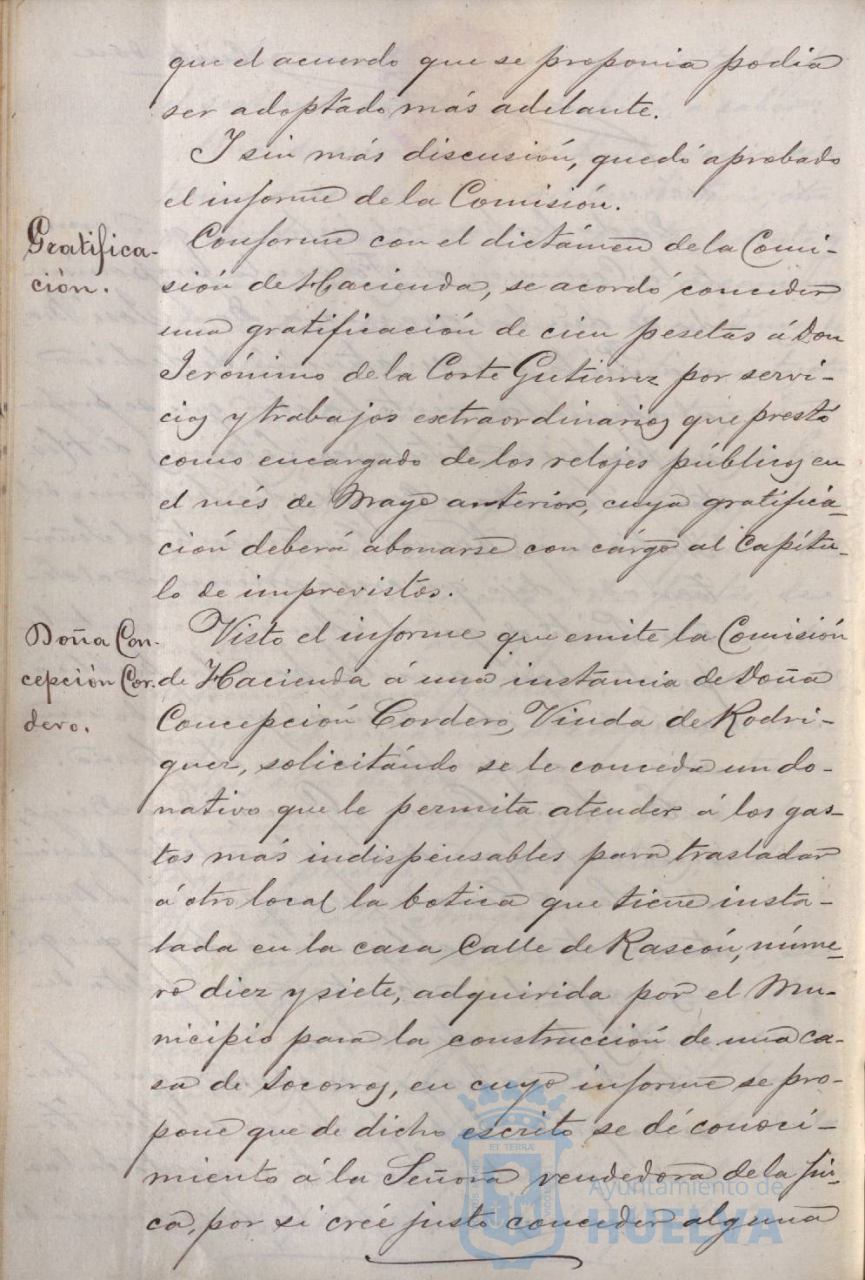 que el acuerdo que se proponia podia
ser adoptado más adelante.
Y sin más discusión, quedó aprobado
el informe de la Comisión.
Gratifica-
ción.
Conforme con el dictámen de la Comi-
sión de Hacienda, se acordó conceder
una gratificación de cien pesetas á Don
Jerónimo de la Corte Gutierrez por servi-
cios y trabajos extraordinarios que prestó
como encargado de los relojes públicos en
el més de Mayo anterior, cuya gratifica-
ción deberá abonarse con cárgo al Capítu-
lo de imprevistos.
Doña Con-
cepción Cor-
dero.
Visto el informe que emite la Comisión
de Hacienda á una instancia de Doña
Concepción Cordero, Viuda de Rodri-
guez, solicitándo se le conceda un do-
nativo que le permita atender á los gas-
tos más indispensables para trasladar
á otro local la botica que tiene insta-
lada en la casa Calle de Rascón, núme-
ro diez y siete, adquirida por el Mu-
nicipio para la construcción de una ca-
sa de Socorros, en cuyo informe se pro-
pone que de dicho escrito se dé conoci-
miento á la Señora vendedora de la fin-
ca, por si creé justo conceder alguna
ET TERRÆ
Ayuntamiento de
HUELVA